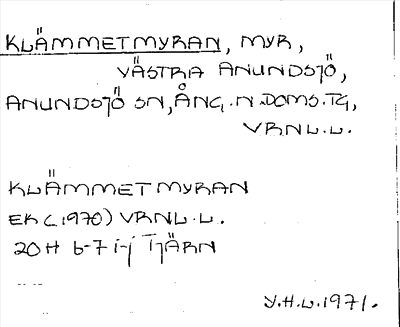 KLÄMMETMYRAN, MYR,
VÄSTRA ANUNDSJÖ,
ANUNDSJÖ SN, ÅNG. N. DOMS. TG,
VRNL.L.
KLÄMMETMYRAN
EK (1970) VRNL.L.
20H 6-7 i-j TJÄRN
Y.H.L. 1971.